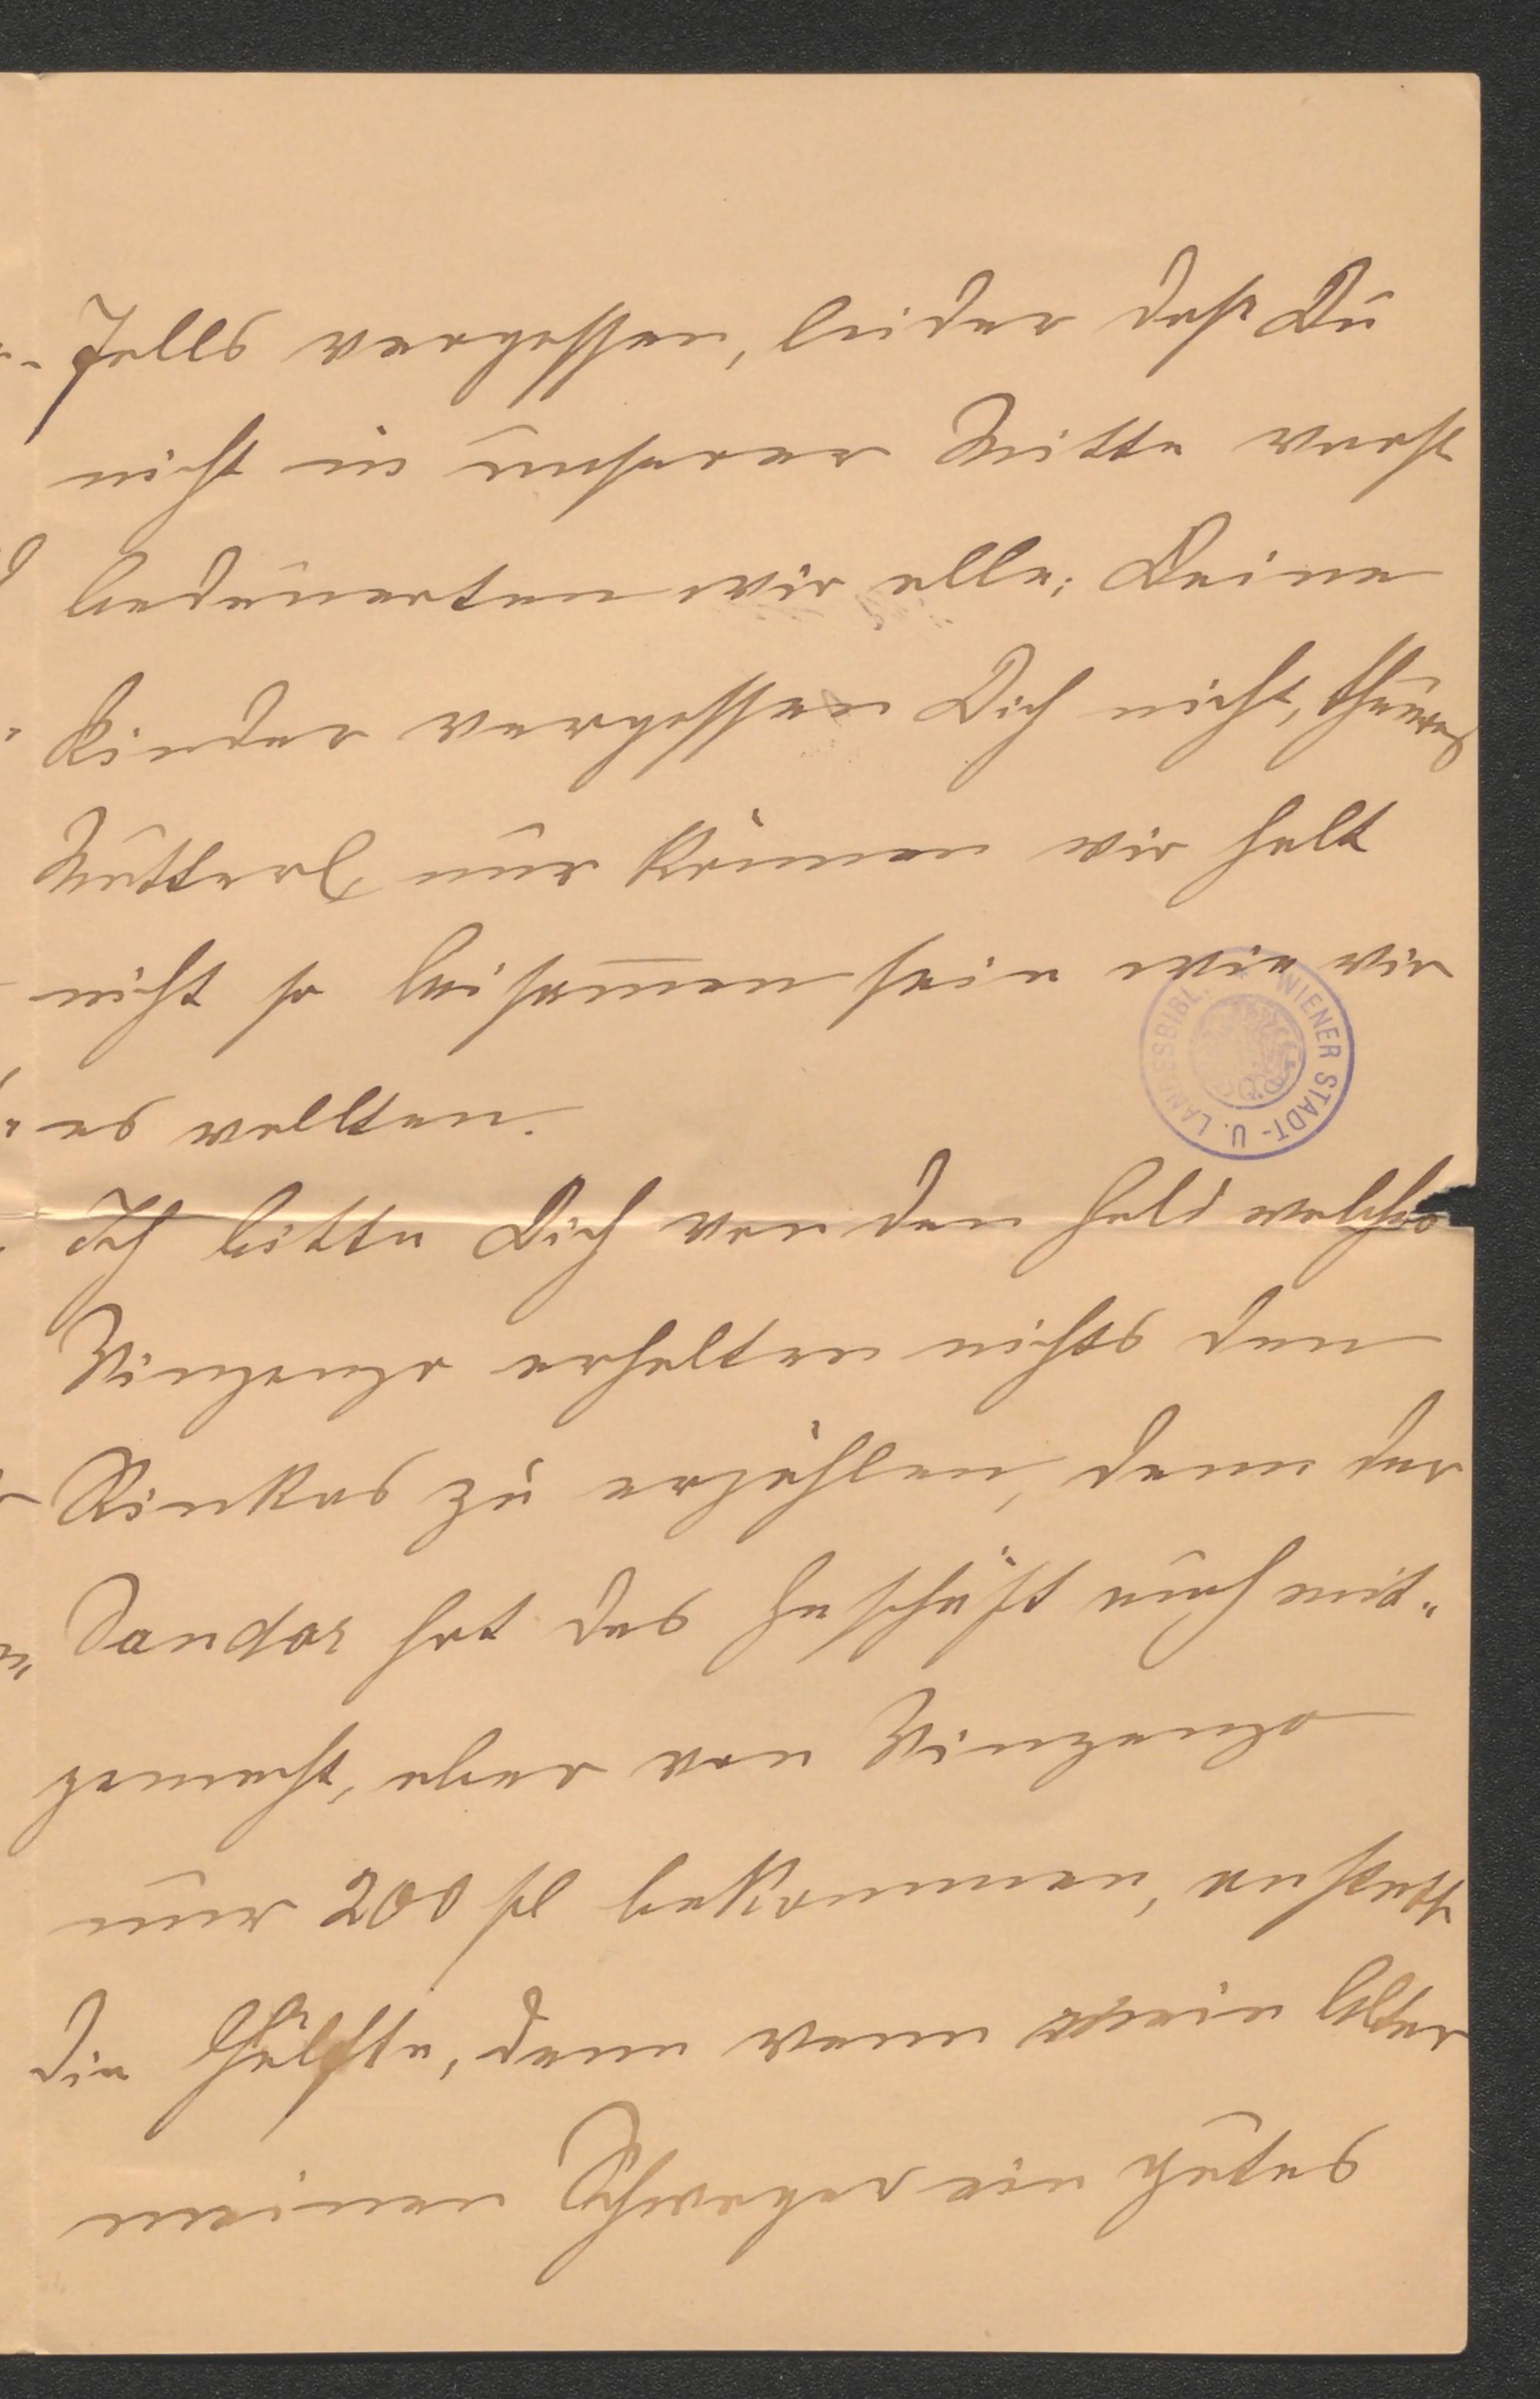 falls vergessen, leider daß Du
nicht in unserer Mitte warst
bedauerten wir alle; Deine
Kinder vergessen Dich nicht, theures
Mutterl, nur können wir halt
nicht so beisam̄en sein wie wir
es wollten.
Ich bitte Dich von den Geld welches
Vinzenzo erhalten nichts den
Rinkas zu erzählen, denn der
Sandor hat das Geschäft auch mit„
gemacht, aber von Vinzenzo
nur 200 fl bekommen, anstatt
die Hälfte, denn wenn mein Alter
meinen Schwager ein gutes
WIENER STADT- U. LANDESBIBL.